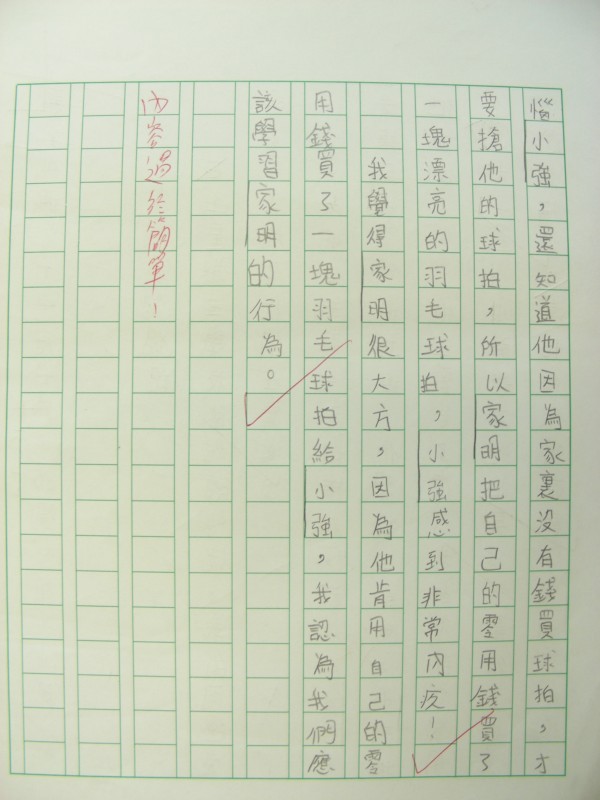 惱小強，還知道他因為家裏沒有錢買球拍，才
要搶他的球拍，所以家明把自己的零用錢買了
一塊漂亮的羽毛球拍，小強感到非常內疚！
我覺得家明很大方，因為他肯用自己的零
用錢買了一塊羽毛球拍給小強，我認為我們應
該學習家明的行為。
內容過於簡單！